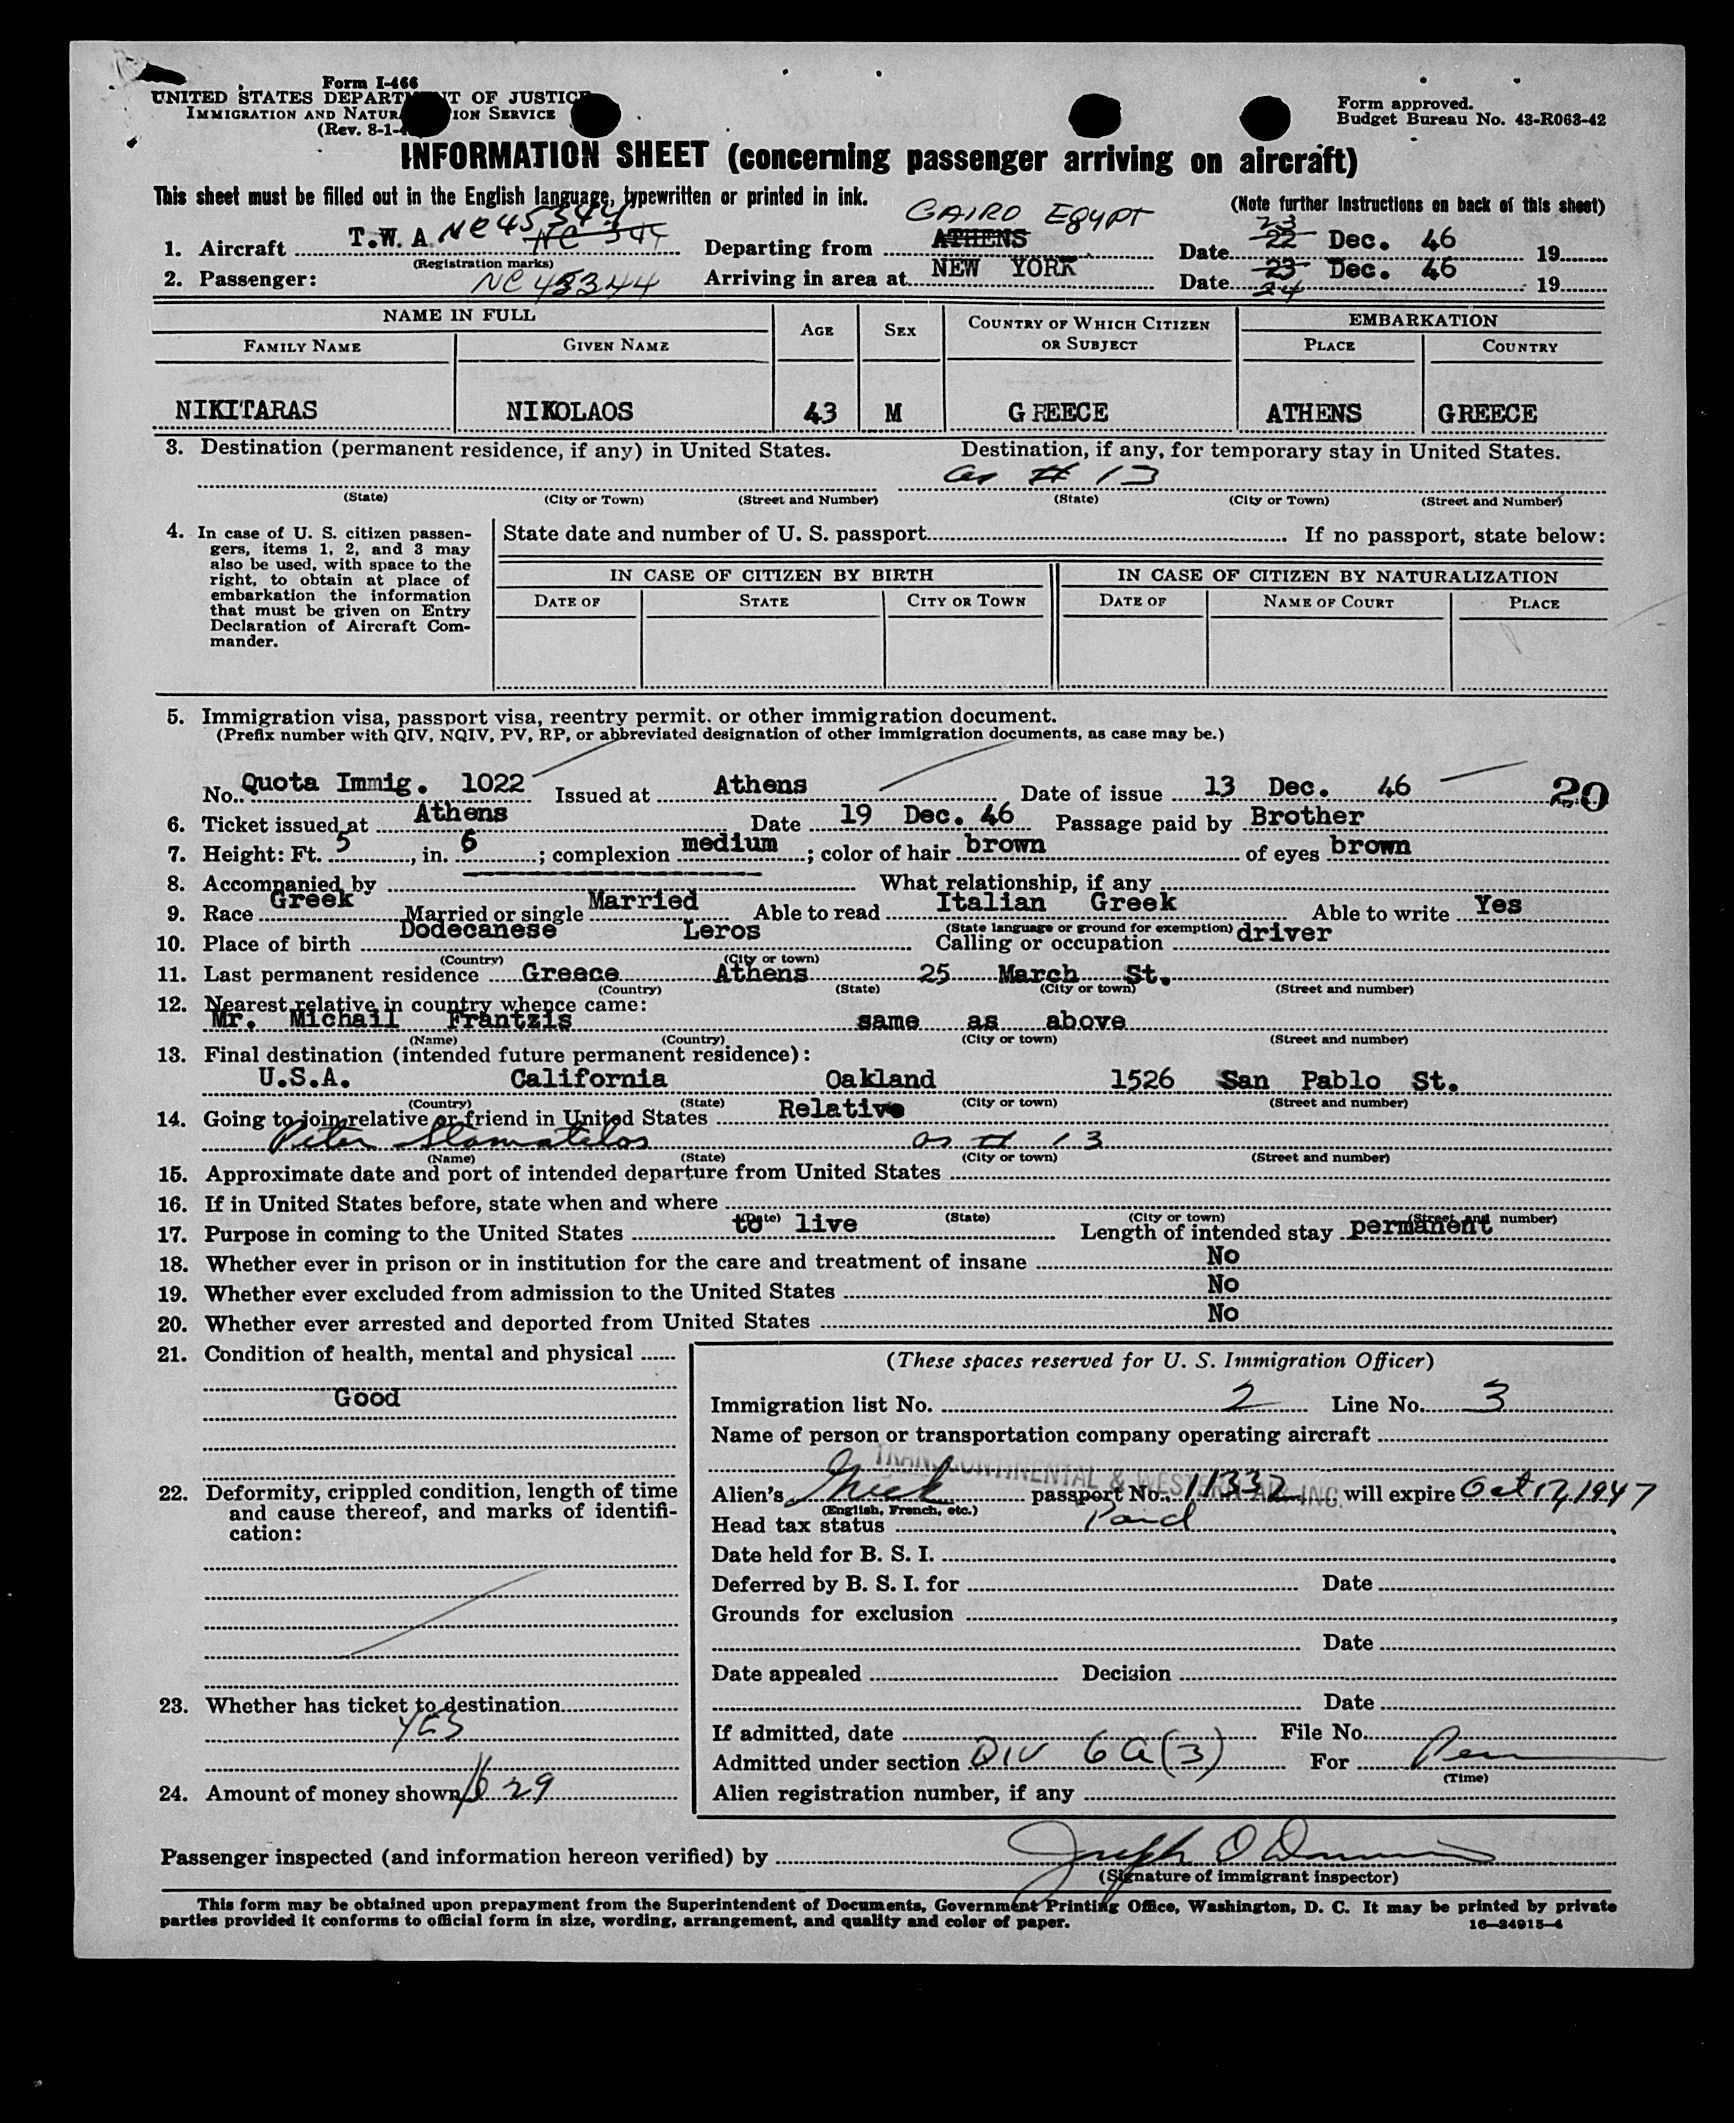 Form I-466
UNITED STATES DEPARTMENT OF JUSTICE
IMMIGRATION AND NATURALIZATION SERVICE
(Rev. 8-1-4
Form approved.
Budget Bureau No. 43-R063-42
INFORMATION SHEET (concerning passenger arriving on aircraft)
This sheet must be filled out in the English language, typewritten or printed in ink.
(Note further instructions on back of this sheet)
1. Aircraft T.W.A. NC45344 NC 344 Departing from CAIRO EGYPT ATHENS Date 23 22 Dec. 46 19
(Registration marks)
2. Passenger: NC 45344 Arriving in area at NEW YORK Date 23 24 Dec. 46 19
NAME IN FULL AGE SEX COUNTRY OF WHICH CITIZEN OR SUBJECT EMBARKATION
FAMILY NAME GIVEN NAME PLACE COUNTRY
NIKITARAS NIKOLAOS 43 M GREECE ATHENS GREECE
3. Destination (permanent residence, if any) in United States. Destination, if any, for temporary stay in United States.
as # 13
(State) (City or Town) (Street and Number) (State) (City or Town) (Street and Number)
4. In case of U. S. citizen passen-
gers, items 1, 2, and 3 may
also be used, with space to the
right, to obtain at place of
embarkation the information
that must be given on Entry
Declaration of Aircraft Com-
mander.
State date and number of U. S. passport If no passport, state below:
IN CASE OF CITIZEN BY BIRTH IN CASE OF CITIZEN BY NATURALIZATION
DATE OF STATE CITY OR TOWN DATE OF NAME OF COURT PLACE
5. Immigration visa, passport visa, reentry permit, or other immigration document.
(Prefix number with QIV, NQIV, PV, RP, or abbreviated designation of other immigration documents, as case may be.)
No. Quota Immig. 1022 Issued at Athens Date of issue 13 Dec. 46 20
6. Ticket issued at Athens Date 19 Dec. 46 Passage paid by Brother
7. Height: Ft. 5, in. 6; complexion medium; color of hair brown of eyes brown
8. Accompanied by What relationship, if any
9. Race Greek Married or single Married Able to read Italian Greek Able to write Yes
(State language or ground for exemption)
10. Place of birth Dodecanese Leros Calling or occupation driver
(Country) (City or town)
11. Last permanent residence Greece Athens 25 March St.
(Country) (State) (City or town) (Street and number)
12. Nearest relative in country whence came:
Mr. Michail Frantzis same as above
(Name) (Country) (City or town) (Street and number)
13. Final destination (intended future permanent residence):
U.S.A. California Oakland 1526 San Pablo St.
(Country) (State) (City or town) (Street and number)
14. Going to join relative or friend in United States Relative
Peter Stamatelos as # 13
(Name) (State) (City or town) (Street and number)
15. Approximate date and port of intended departure from United States
16. If in United States before, state when and where
(Date) (State) (City or town) (Street and number)
17. Purpose in coming to the United States to live Length of intended stay permanent
18. Whether ever in prison or in institution for the care and treatment of insane No
19. Whether ever excluded from admission to the United States No
20. Whether ever arrested and deported from United States No
21. Condition of health, mental and physical
Good
22. Deformity, crippled condition, length of time
and cause thereof, and marks of identifi-
cation:
23. Whether has ticket to destination
YES
24. Amount of money shown $ 29
(These spaces reserved for U. S. Immigration Officer)
Immigration list No. 2 Line No. 3
Name of person or transportation company operating aircraft
TRANSCONTINENTAL & WESTERN AIR INC.
Alien's Greek passport No. 11332 will expire Oct 17, 1947
(English, French, etc.)
Head tax status Paid
Date held for B. S. I.
Deferred by B. S. I. for Date
Grounds for exclusion
Date
Date appealed Decision
Date
If admitted, date File No.
Admitted under section QIV 6a(3) For Perm
(Time)
Alien registration number, if any
Passenger inspected (and information hereon verified) by Joseph O
(Signature of immigrant inspector)
This form may be obtained upon prepayment from the Superintendent of Documents, Government Printing Office, Washington, D. C. It may be printed by private
parties provided it conforms to official form in size, wording, arrangement, and quality and color of paper.
16—24915-4